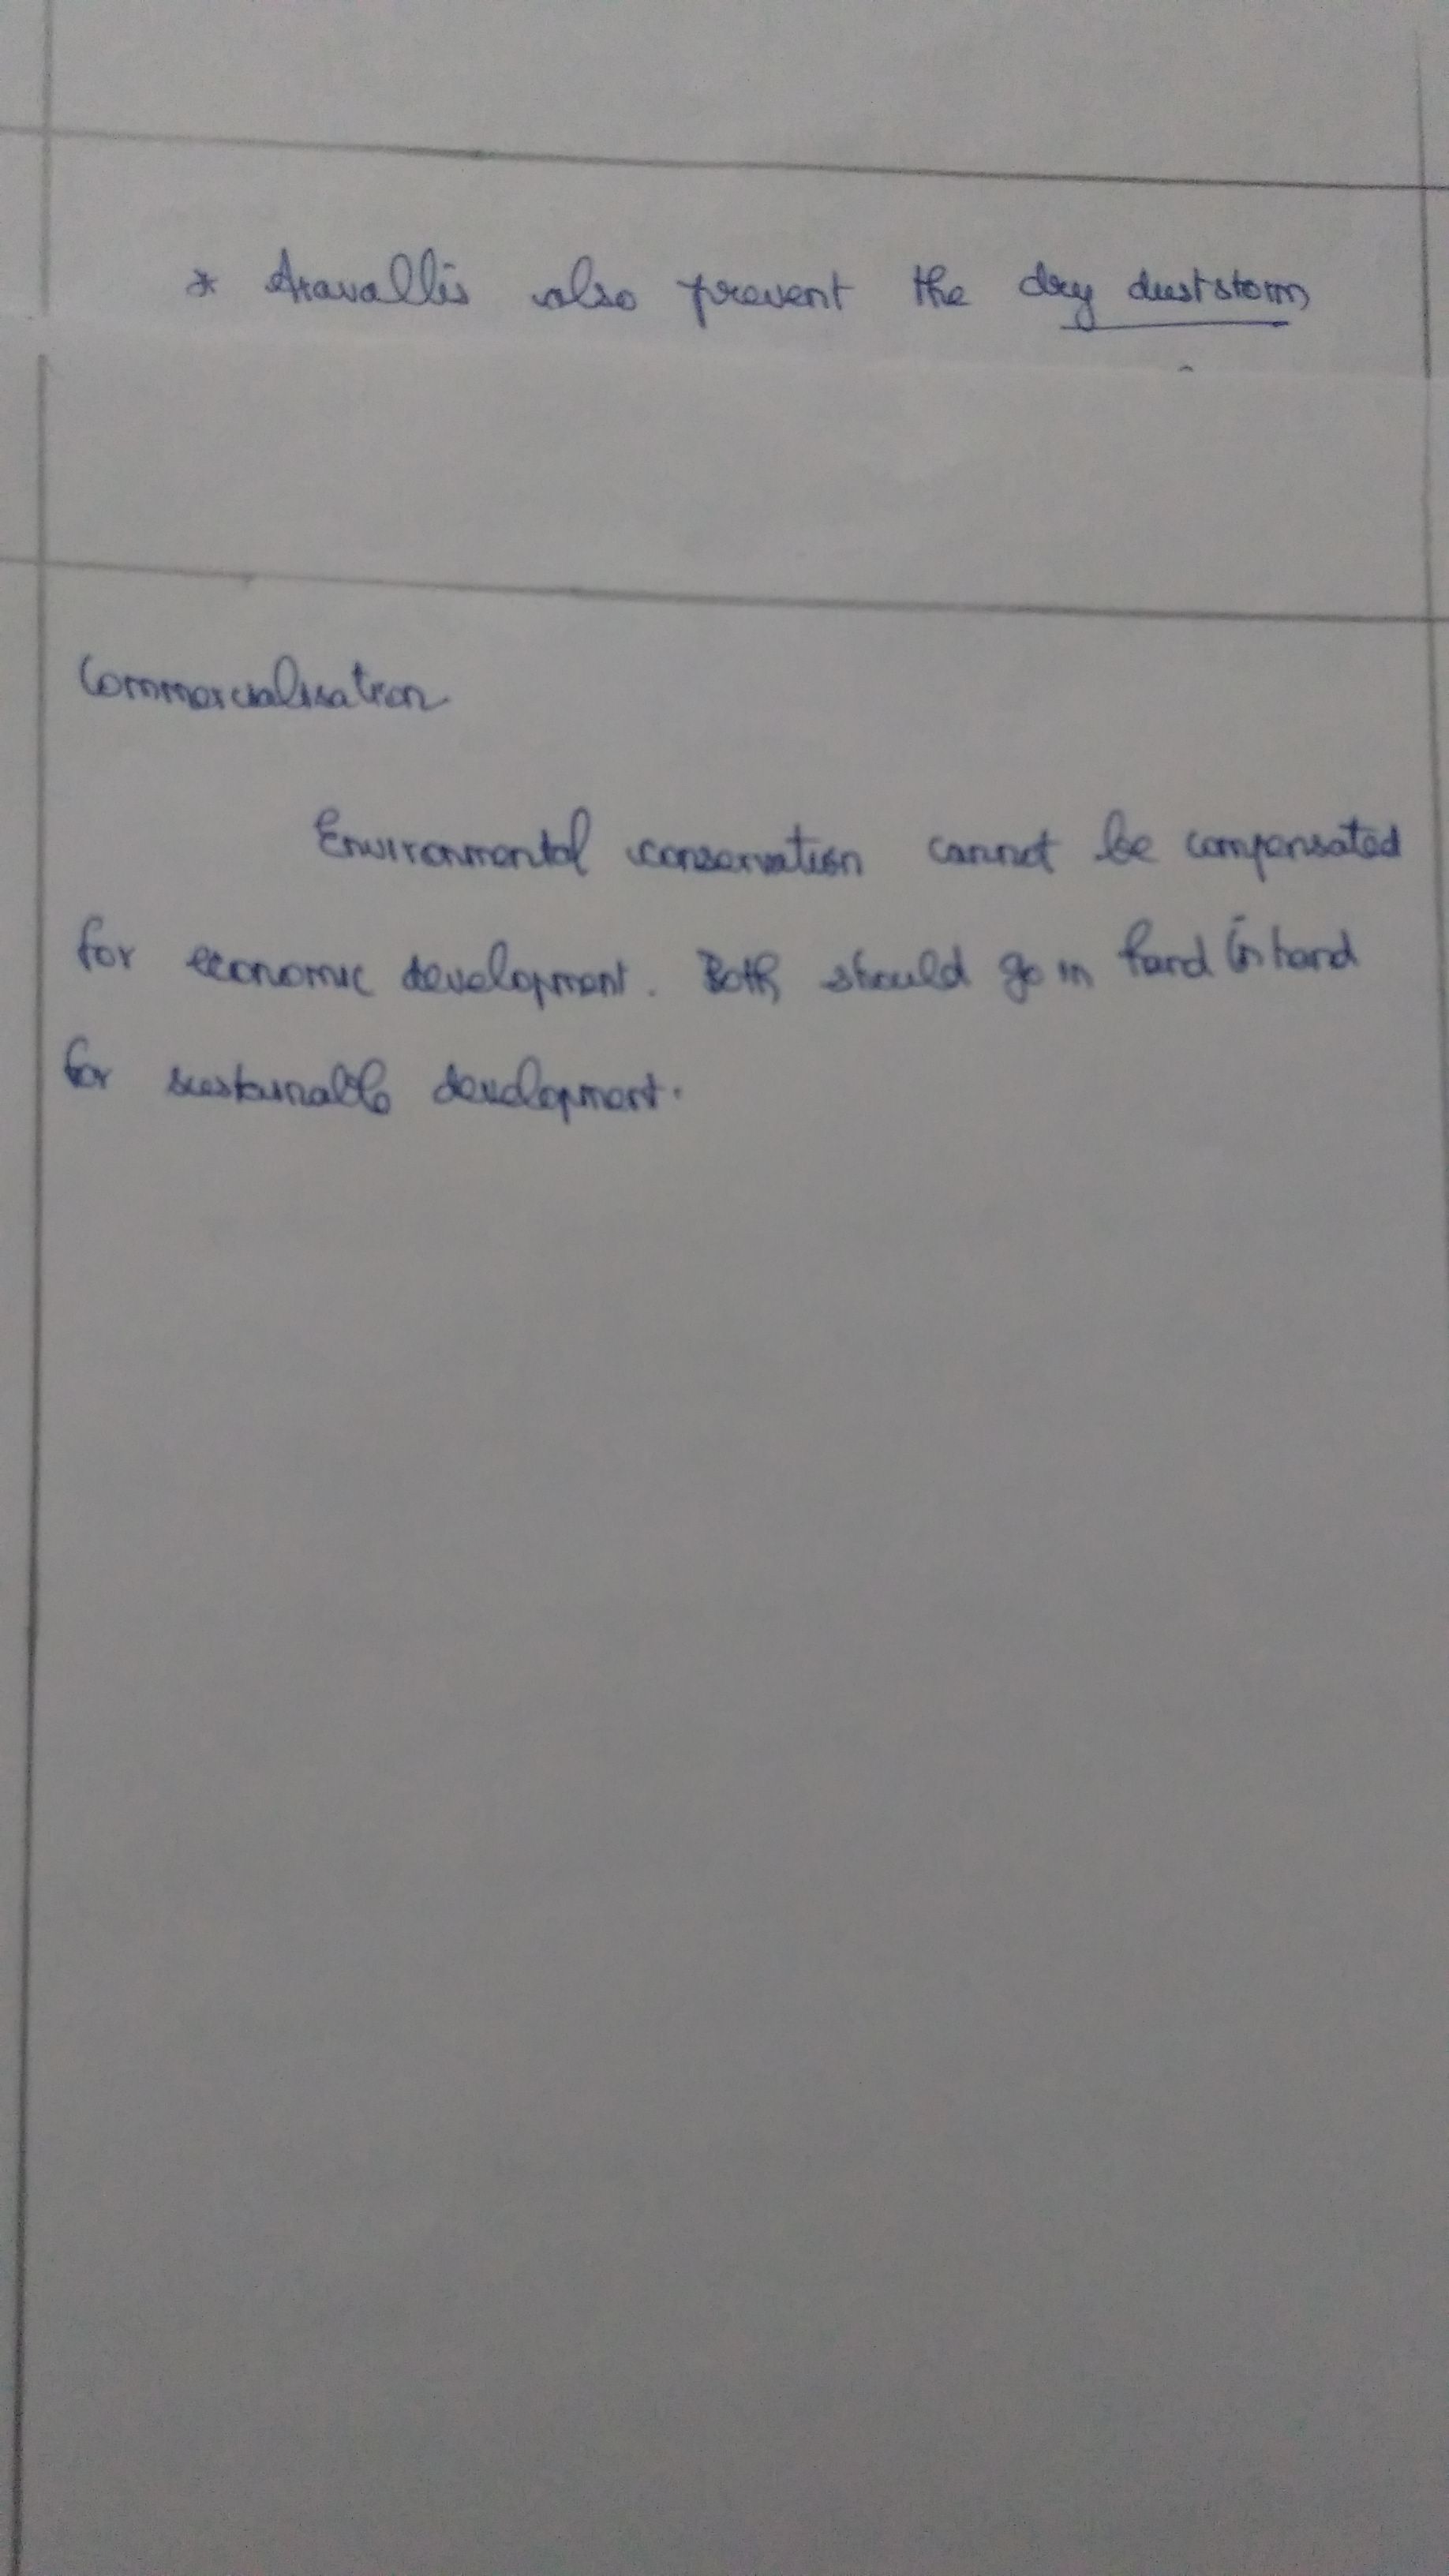 * Aravallis also prevent the dry duststorm
Commercialisation
Environmental conservation cannot be compensated
for economic development. Both should go in hand in hand
for sustainable development.